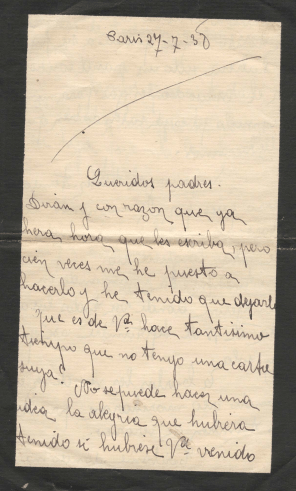 Paris 27-7-38
Queridos padres.
Dirán y con razon que ya
hera hora que les escriba, pero
cien veces me he puesto a
hacerlo y he tenido que dejarlo
que es de Vª. hace tantisimo
tiempo que no tengo una carta
suya? No sepuede hacer una
idea la alegria que hubiera
tenido si hubiese Vª venido